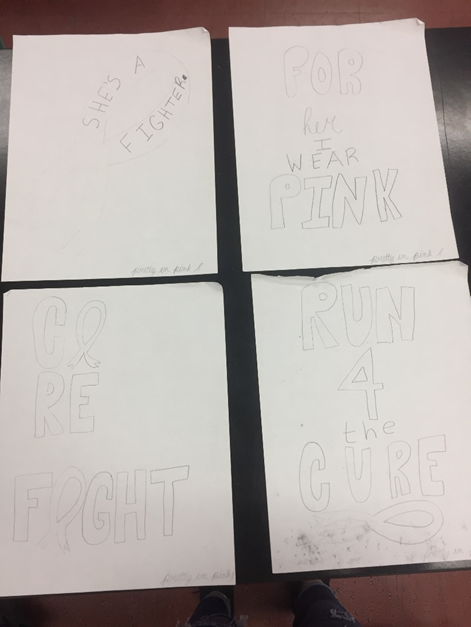 SHE'S A
FIGHTER.
pretty in pink
FOR
her
I
WEAR
PINK
pretty in pink
CU
RE
FIGHT
pretty in pink
RUN
4
the
CURE
pretty in